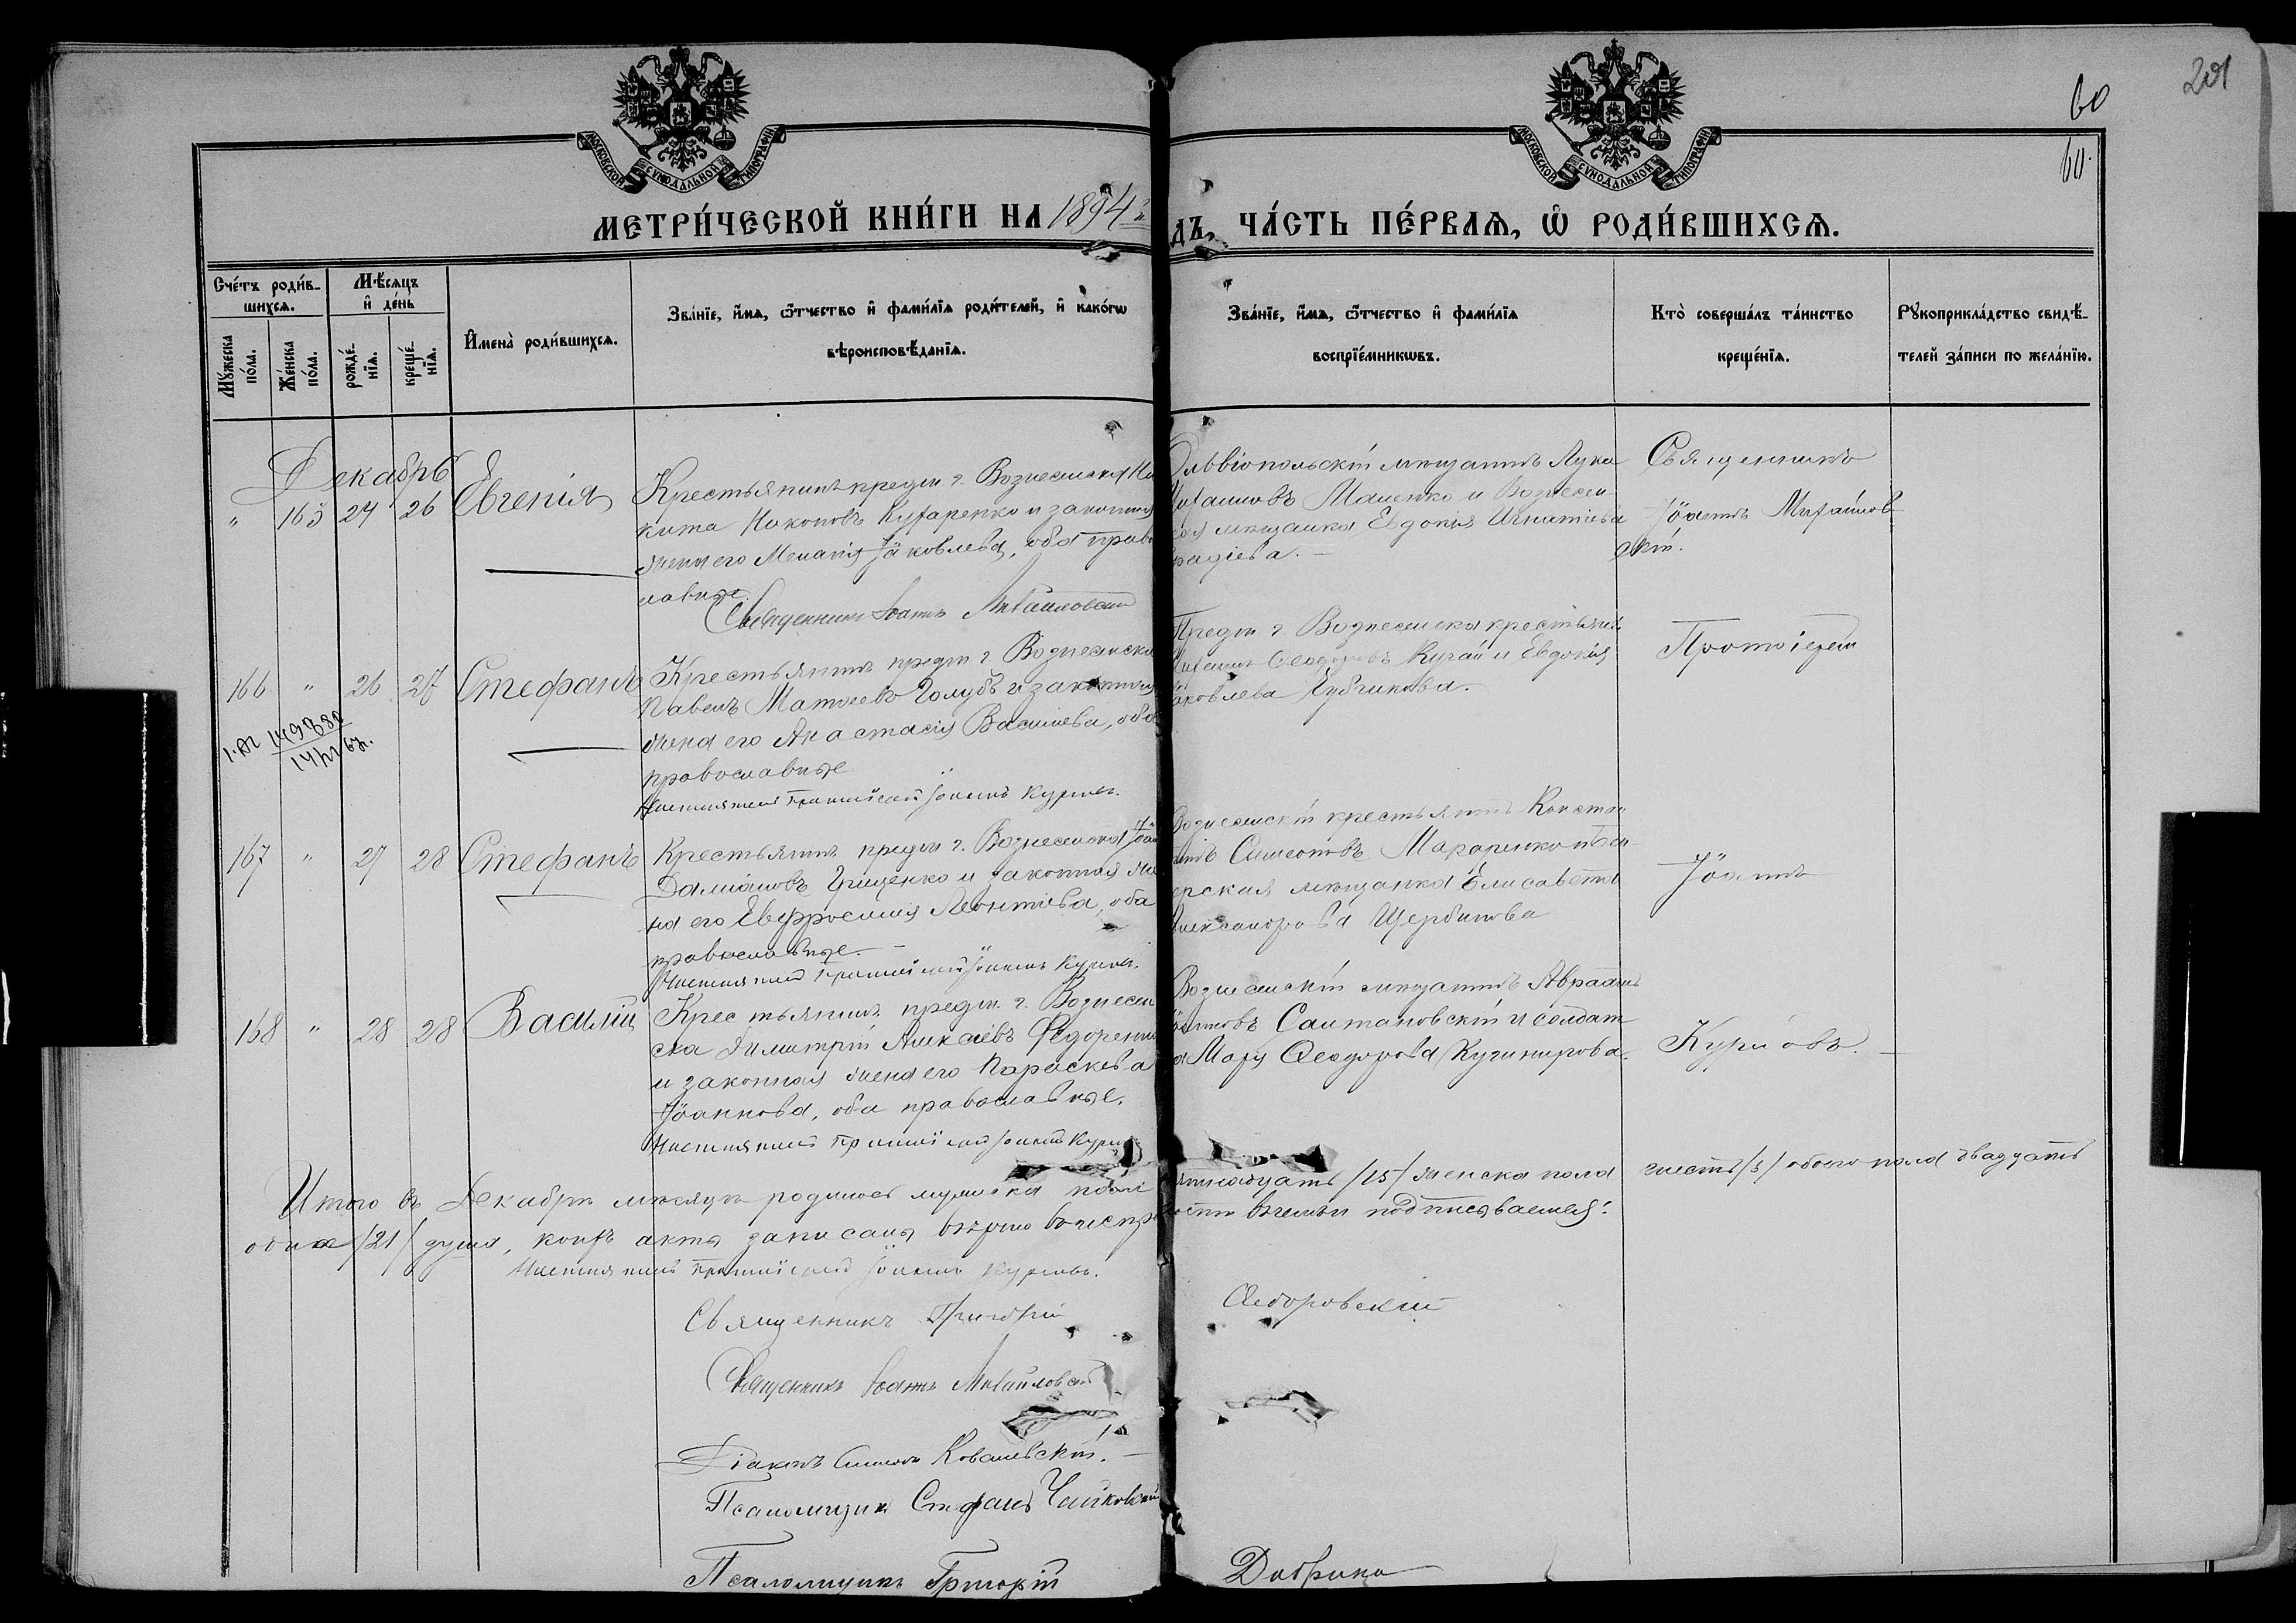 201
60
60.
МОСКОВСКОЙ СѴНОДАЛЬНОЙ ТИПОГРАФІИ
МОСКОВСКОЙ СѴНОДАЛЬНОЙ ТИПОГРАФІИ
МЕТРИ́ЧЕСКОЙ КНИ́ГИ НА 1894
ДЪ, ЧА́СТЬ ПЕ́РВАѦ, Ѡ҆ РОДИ́ВШИХСѦ.
Сче́тъ роди́в-
шихсѧ.
Мꙋ́жеска по́ла.
Же́нска по́ла.
Мѣ́сѧцъ
и҆ де́нь
рожде́-
нїѧ.
креще́-
нїѧ.
И҆мена̀ роди́вшихсѧ.
Зва́нїе, и҆́мѧ, ѻ҆́тчество и҆ фами́лїѧ роди́телей, и҆ како́гѡ
вѣроисповѣ́данїѧ.
Зва́нїе, и҆́мѧ, ѻ҆́тчество и҆ фами́лїѧ
воспрїе́мникѡвъ.
Кто̀ соверша́лъ та́инство
креще́нїѧ.
Рꙋкоприкла́дство свидѣ́-
телей за́писи по жела́нїю.
Декабрь
" 165 24 26 Евгенія
Крестьянинъ предм г. Вознесенска Ни
кита Никоновъ Кухаренко и законная
жена его Меланія Іаковлева, оба право
славные.
Священникъ Іоаннъ Михайловскій
Ольвіопольскій мѣщанинъ Лука
Маценко и Вознесен
кая мѣщанка Евдокія Игнатіева
Священникъ
Іоаннъ Михайлов
скій.
166 " 26 27 Стефанъ
Крестьянинъ предм г Вознесенска
Павелъ Матѳеевъ Голубъ и законная
жена его Анастасія Васильева, оба
православные
Іоаннъ Курловъ.
Предм г Вознесенска крестьян.
Ѳеодоровъ Кучай и Евдокія
аковлева Чубчикова.
Протоіерей
167 " 27 28 Стефанъ
Крестьянинъ предм г. Вознесенска Іоан
Даміановъ Грищенко и законная же
на его Евфросинія Леонтіева, оба
православные.
Іоаннъ Курловъ.
Вознесенскій крестьянинъ Конста
Симеоновъ и Бен
ерская мѣщанка Елисавета
лександрова Щербинова
Іоаннъ
168 " 28 28 Василій
Крестьянинъ предм. г. Вознесен
ска Димитрій Алексіевъ Федоренко
и законная жена его Параскева
Іоаннова, оба православные.
Вознесенскій мѣщанинъ Авраамъ
Салтановскій и солдат
а Ѳеодорова Кучинирова.
Курловъ.
Итого въ Декабрѣ мѣсяцѣ родилось мужеска пола
ятнадцать /15/ женска пола
шесть обоего пола двадцать
одна /21/ душа, коихъ акты записаны вѣрно
въ чемъ и подписываемся:
Іоаннъ Курловъ.
Священникъ Григорій
Ѳедоровскій
Священникъ Іоаннъ Михайловскій
Діаконъ Симеонъ Ковалевскій.
Псаломщикъ Стефанъ Чайковскій
Псаломщикъ Григорій